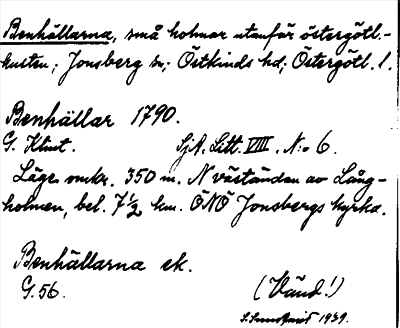 Benhällarna, små holmar utanför östergötl.-
kusten; Jonsberg sn; Östkinds hd; Östergötl. l.
Benhällar 1790.
G. Klint. SjA. Litt. VIII. N:o 6.
Läge omkr. 350 m. N väständan av Lång-
holmen, bel. 7½ km. ÖNÖ Jonsbergs kyrka.
Benhällarna ek.
G. 56. (Vänd!)
1939.